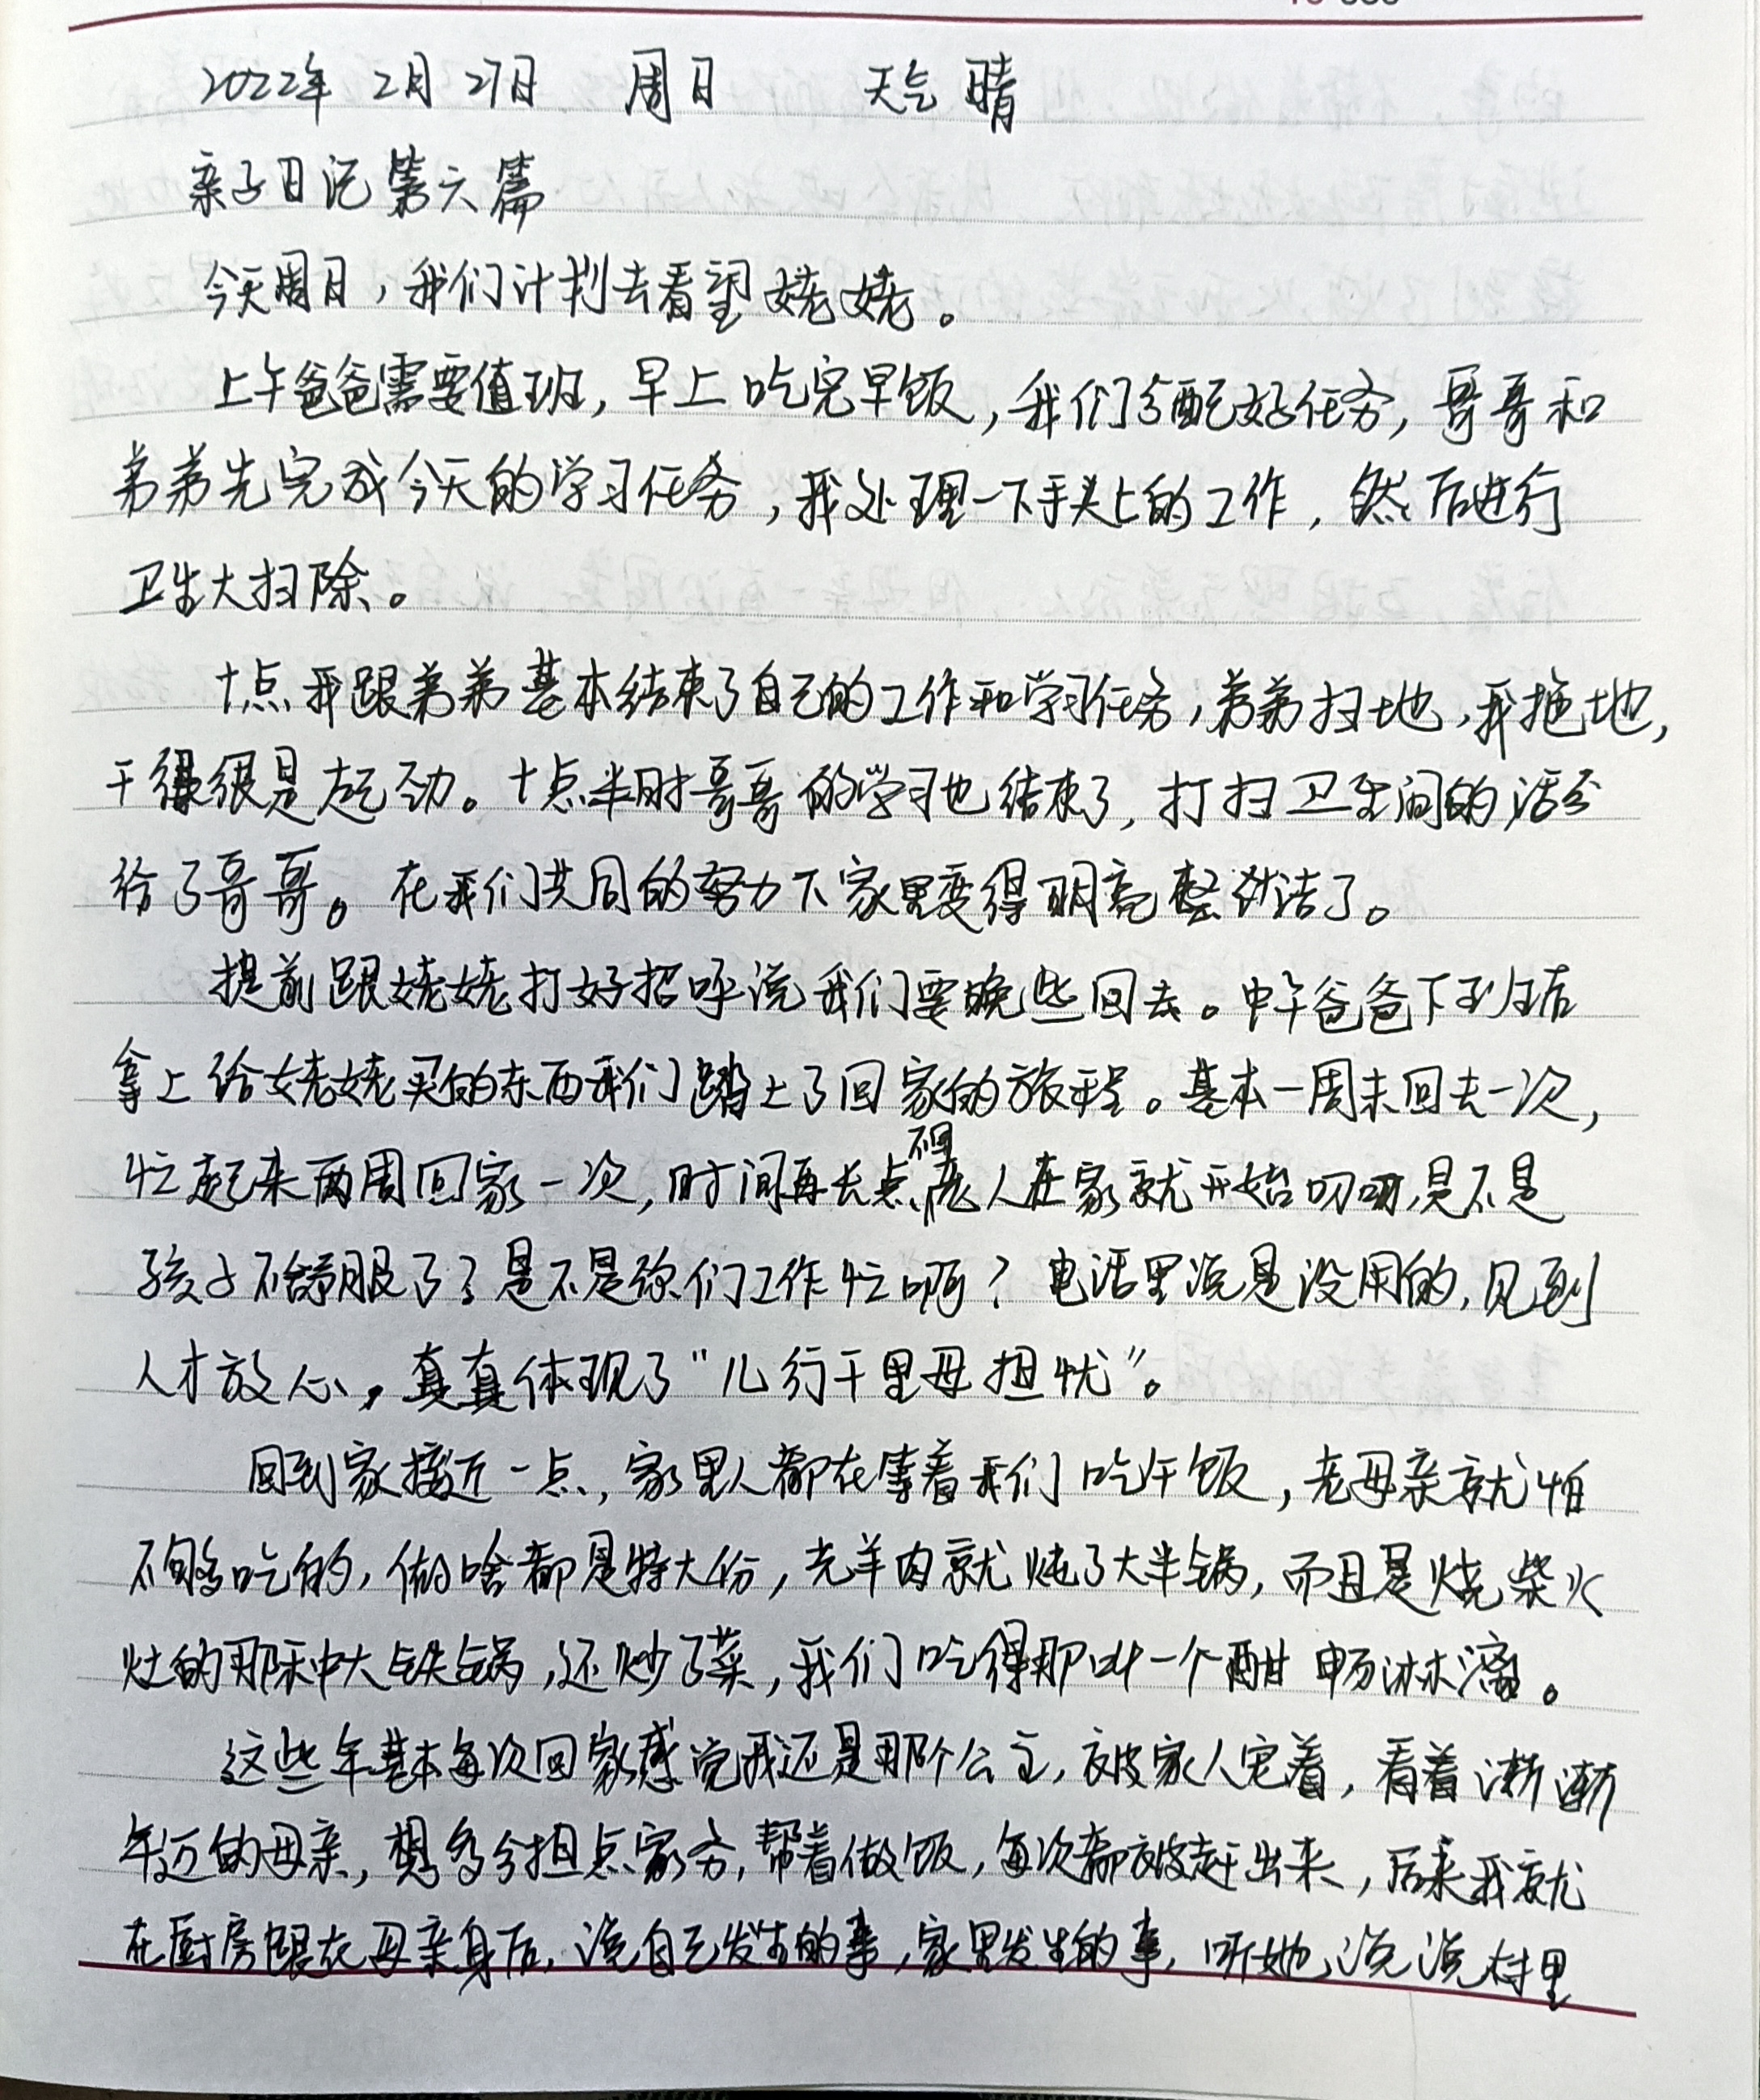 2022年 2月 27日 周日 天气 晴
亲子日记第六篇
今天周日，我们计划去看望姥姥。
上午爸爸需要值班，早上吃完早饭，我们分配好任务，哥哥和
弟弟先完成今天的学习任务，我处理一下手头上的工作，然后进行
卫生大扫除。
十点我跟弟弟基本结束了自己的工作和学习任务，弟弟扫地，我拖地，
干得很是起劲。十点半时哥哥的学习也结束了，打扫卫生间的活分
给了哥哥。在我们共同的努力下家里变得明亮整洁了。
提前跟姥姥打好招呼说我们要晚些回去。中午爸爸下班后
拿上给姥姥买的东西我们踏上了回家的旅程。基本一周末回去一次，
忙起来两周回家一次，时间再长点不回老人在家就开始叨叨，是不是
孩子不舒服了？是不是你们工作忙啊？电话里说是没用的，见到
人才放心，真真体现了“儿行千里母担忧”。
回到家接近一点，家里人都在等着我们吃午饭，老母亲就怕
不够吃的，做啥都是特大份，光羊肉就炖了大半锅，而且是烧柴火
灶的那种大铁锅，还炒了菜，我们吃得那叫一个酣畅淋漓。
这些年基本每次回家感觉我还是那个公主，被家人宠着，看着渐渐
年迈的母亲，想多分担点家务，帮着做饭，每次都被赶出来，后来我就
在厨房跟在母亲身后，说自己发生的事，家里发生的事，听她说说村里